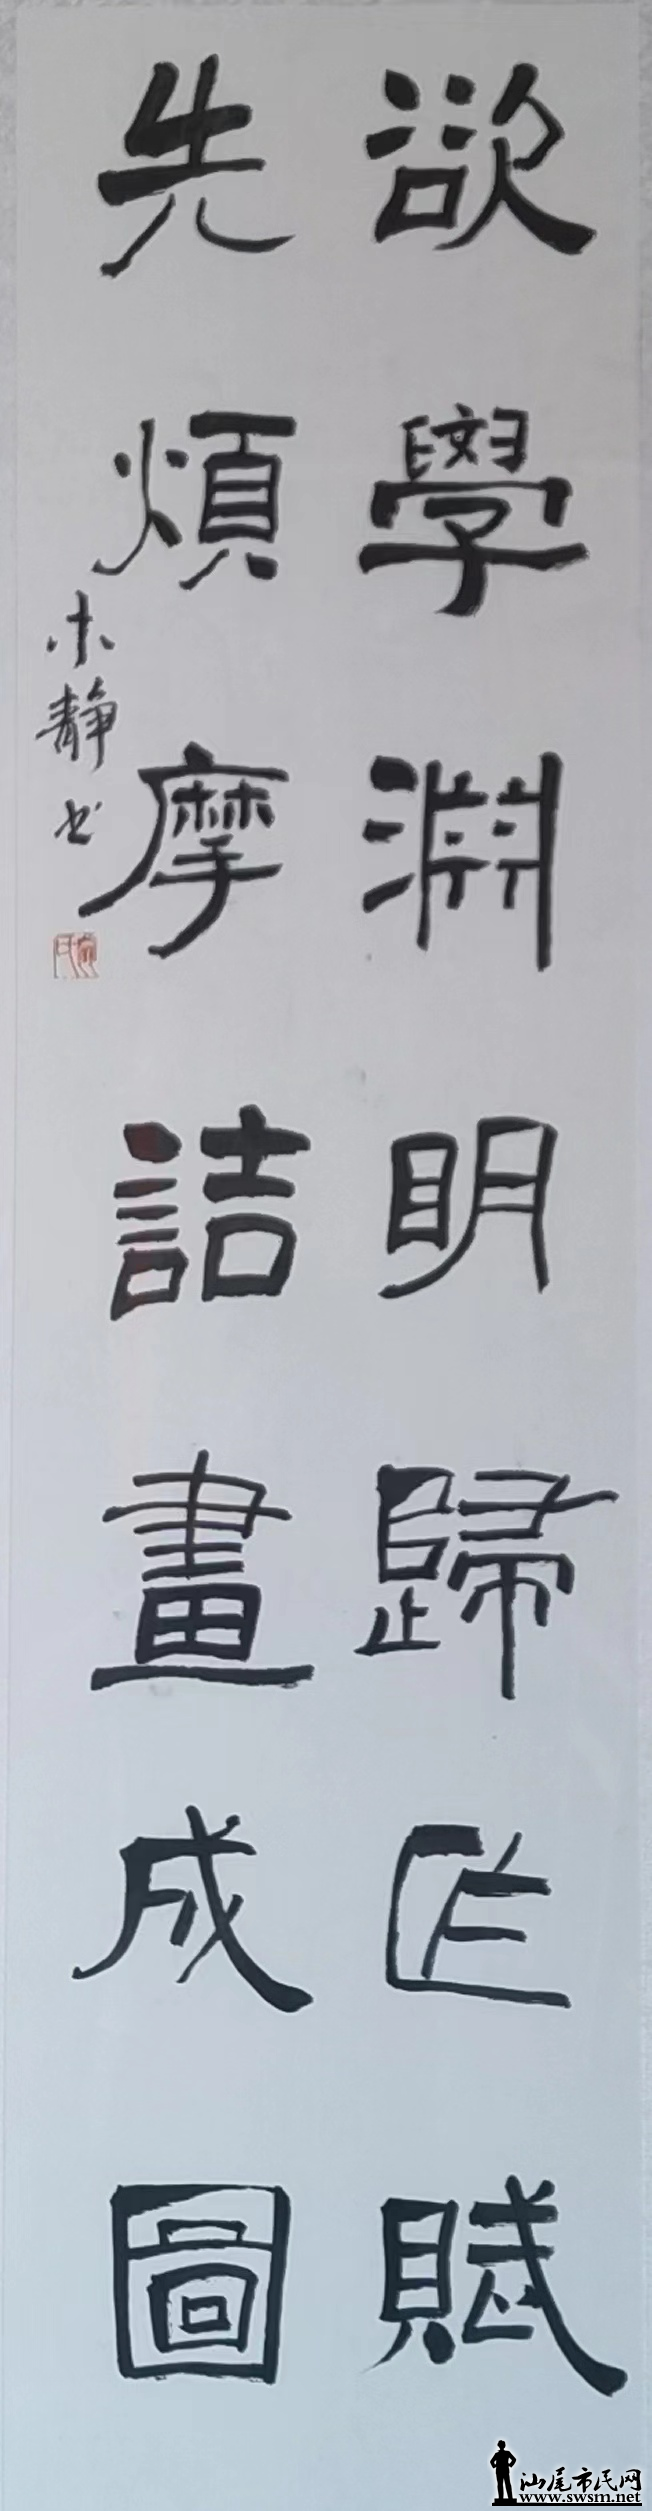 欲學淵明歸作賦
先煩摩詰畫成圖
木静书
汕尾市民网
www.swsm.net